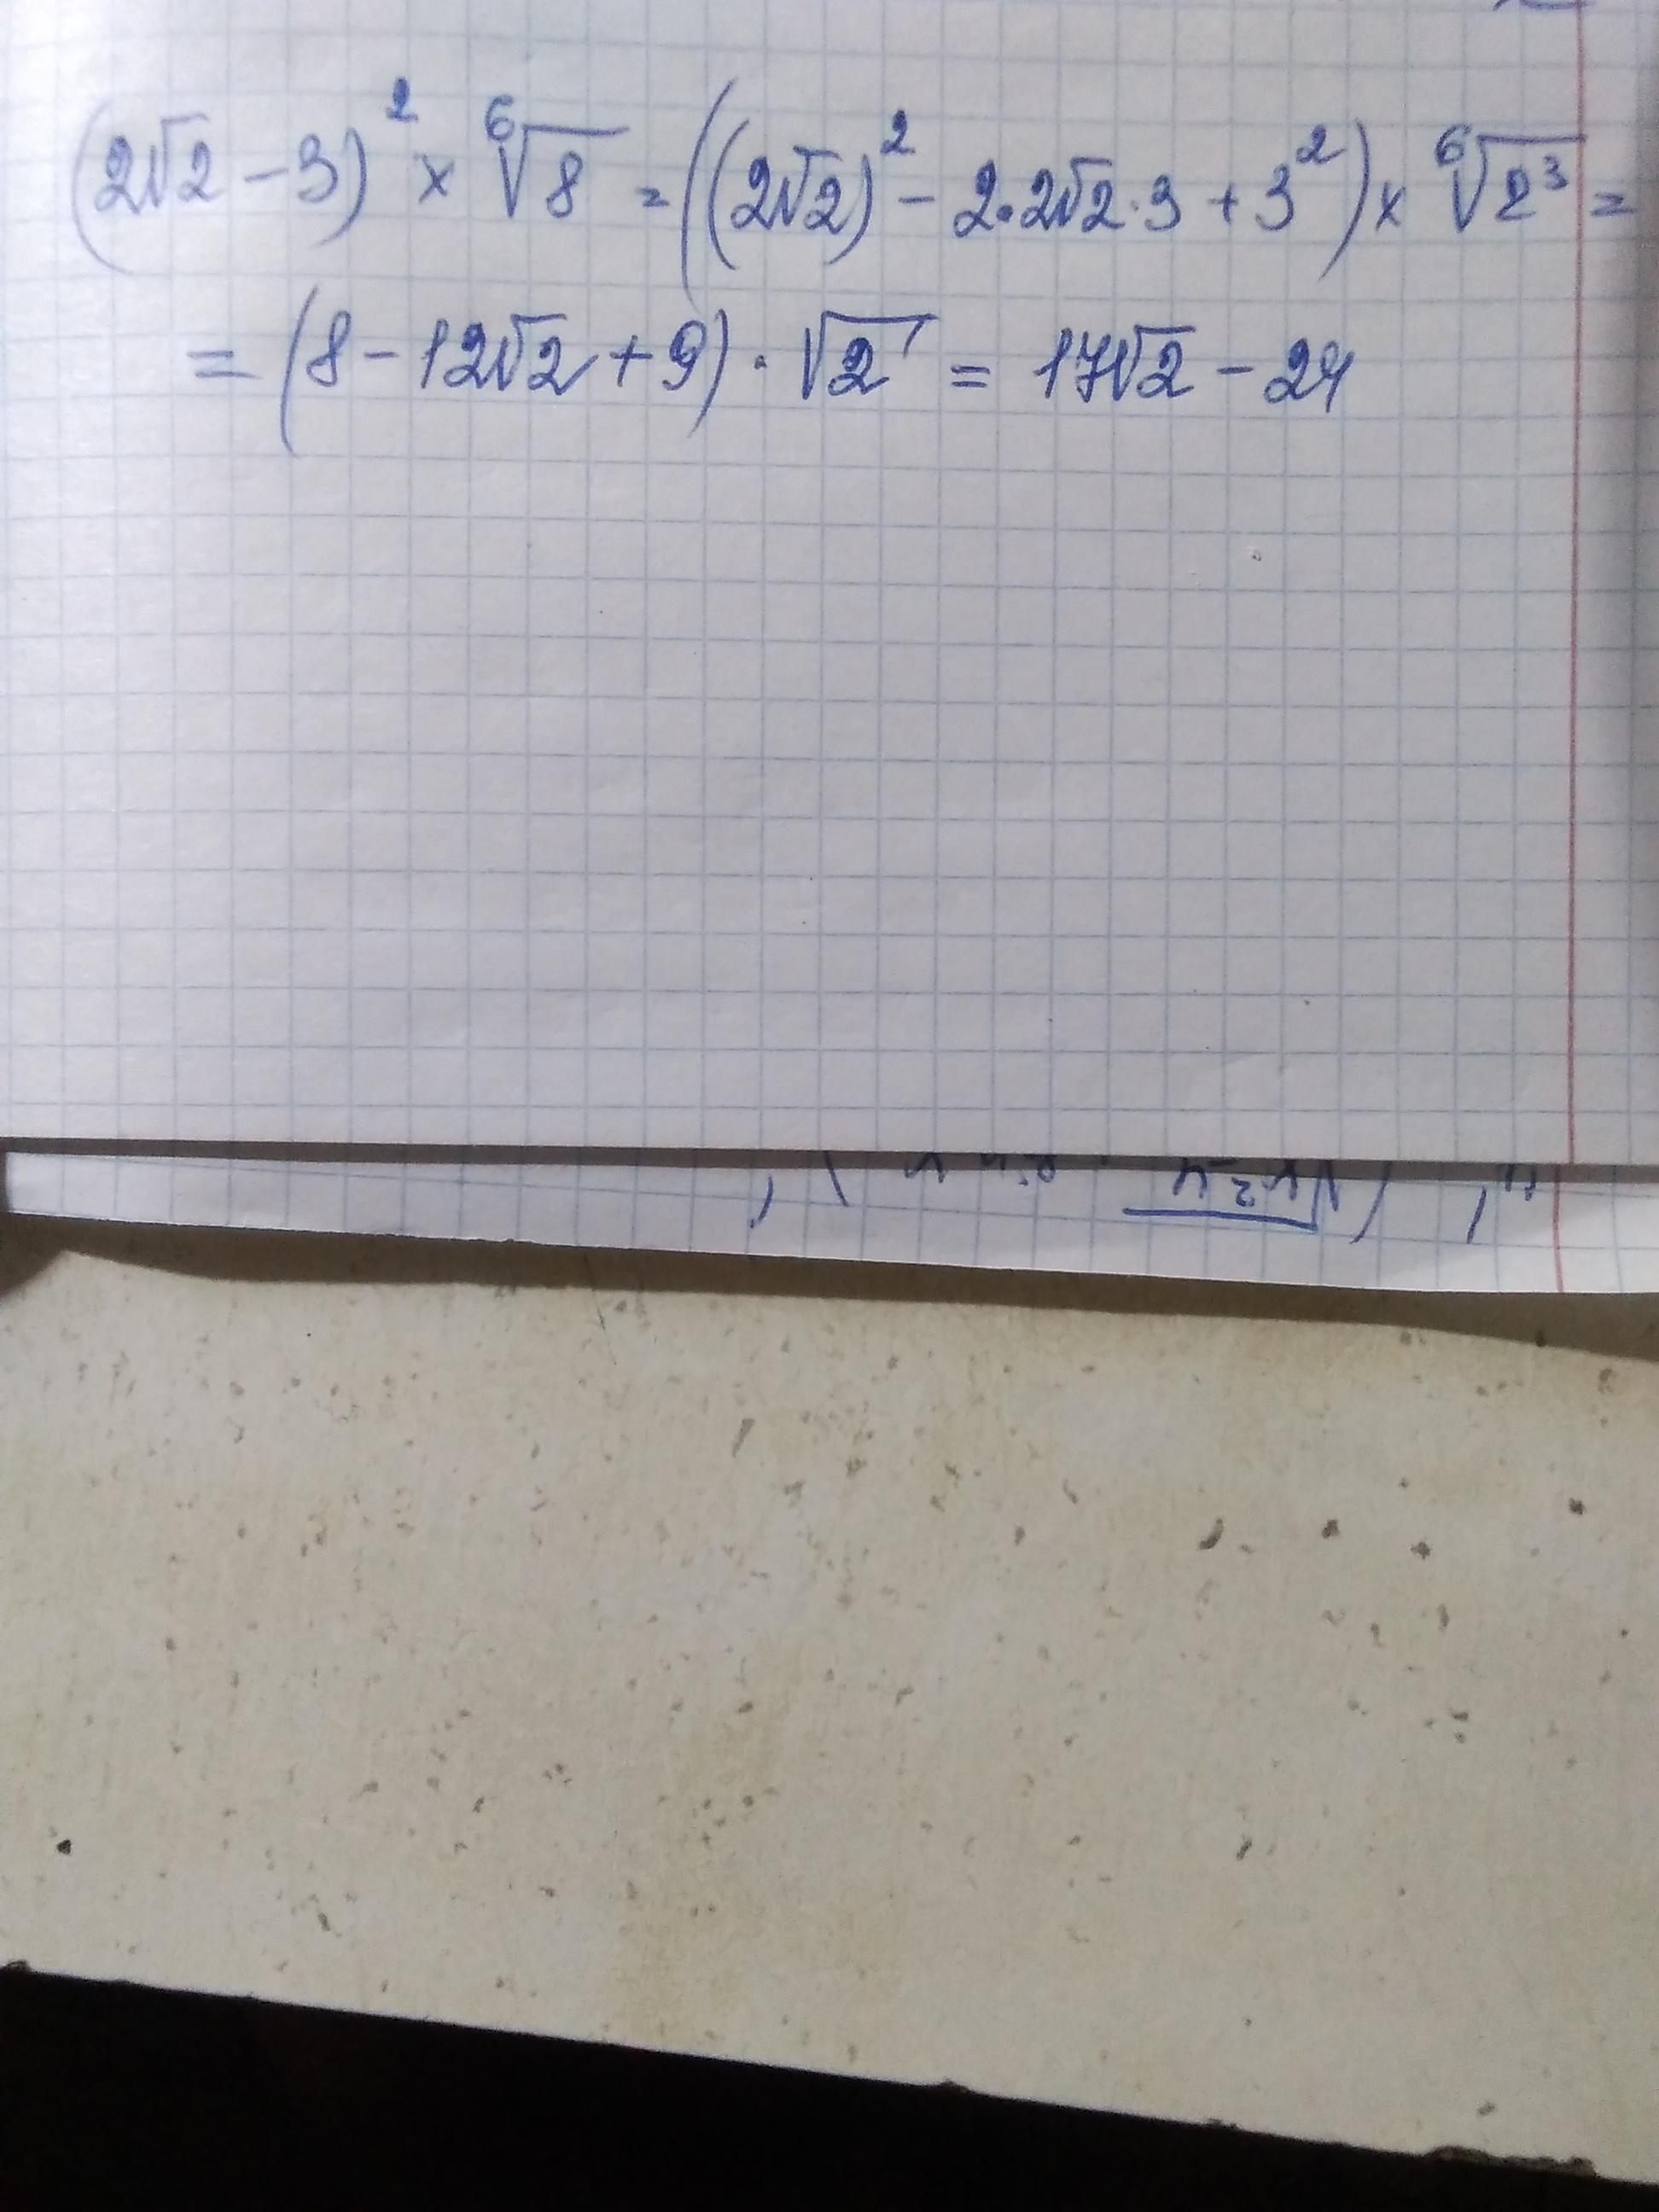 (2√2 - 3)² × ⁶√8 = ((2√2)² - 2·2√2·3 + 3²) × ⁶√2³ =
= (8 - 12√2 + 9) · √2 = 17√2 - 24